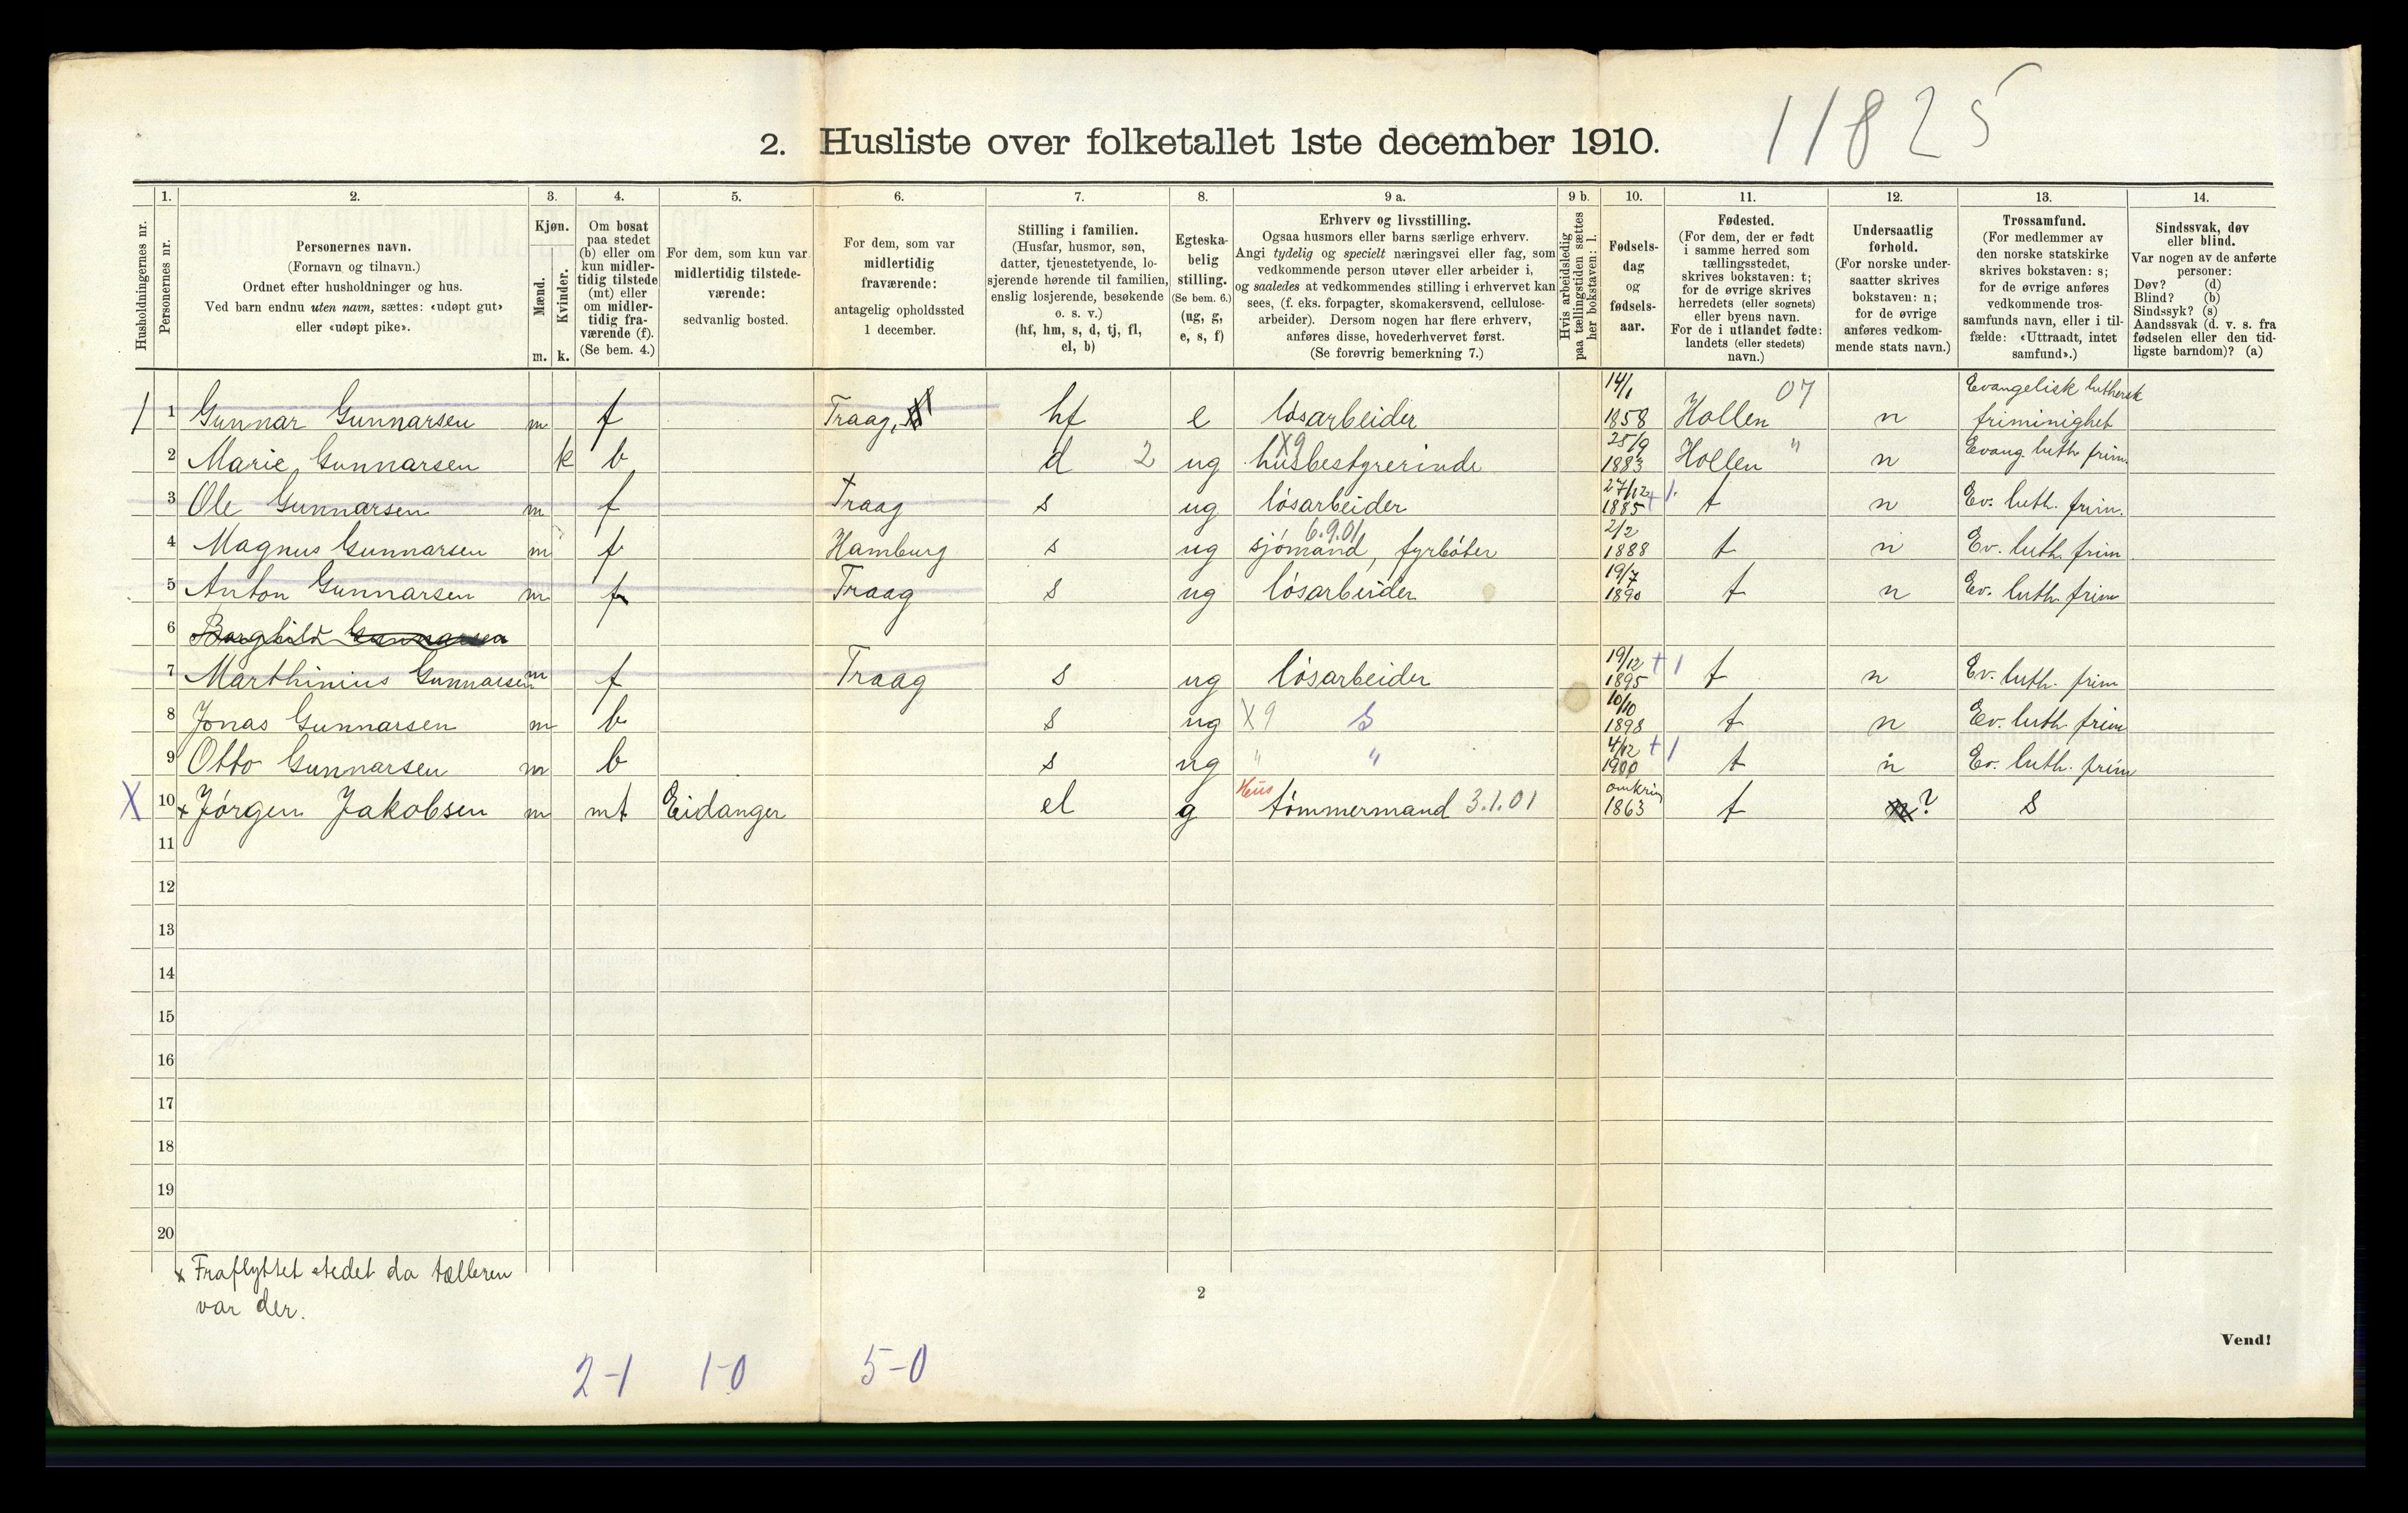 11825
2. Husliste over folketallet 1ste december 1910.
Husholdningernes nr.
1. Personernes nr.
2. Personernes navn.
(Fornavn og tilnavn.)
Ordnet efter husholdninger og hus.
Ved barn endnu uten navn, sættes: «udøpt gut»
eller «udøpt pike».
3. Kjøn.
Mænd. m.
Kvinder. k.
4. Om bosat
paa stedet
(b) eller om
kun midler-
tidig tilstede
(mt) eller
om midler-
tidig fra-
værende (f).
(Se bem. 4.)
5. For dem, som kun var
midlertidig tilstede-
værende:
sedvanlig bosted.
6. For dem, som var
midlertidig
fraværende:
antagelig opholdssted
1 december.
7. Stilling i familien.
(Husfar, husmor, søn,
datter, tjenestetyende, lo-
sjerende hørende til familien,
enslig losjerende, besøkende
o. s. v.)
(hf, hm, s, d, tj, fl,
el, b)
8. Egteska-
belig
stilling.
(Se bem. 6.)
(ug, g,
e, s, f)
9 a. Erhverv og livsstilling.
Ogsaa husmors eller barns særlige erhverv.
Angi tydelig og specielt næringsvei eller fag, som
vedkommende person utøver eller arbeider i,
og saaledes at vedkommendes stilling i erhvervet kan
sees, (f. eks. forpagter, skomakersvend, cellulose-
arbeider). Dersom nogen har flere erhverv,
anføres disse, hovederhvervet først.
(Se forøvrig bemerkning 7.)
9 b. Hvis arbeidsledig
paa tællingstiden sættes
her bokstaven: l.
10. Fødsels-
dag
og
fødsels-
aar.
11. Fødested.
(For dem, der er født
i samme herred som
tællingsstedet,
skrives bokstaven: t;
for de øvrige skrives
herredets (eller sognets)
eller byens navn.
For de i utlandet fødte:
landets (eller stedets)
navn.)
12. Undersaatlig
forhold.
(For norske under-
saatter skrives
bokstaven: n;
for de øvrige
anføres vedkom-
mende stats navn.)
13. Trossamfund.
(For medlemmer av
den norske statskirke
skrives bokstaven: s;
for de øvrige anføres
vedkommende tros-
samfunds navn, eller i til-
fælde: «Uttraadt, intet
samfund».)
14. Sindssvak, døv
eller blind.
Var nogen av de anførte
personer:
Døv? (d)
Blind? (b)
Sindssyk? (s)
Aandssvak (d. v. s. fra
fødselen eller den tid-
ligste barndom)? (a)
1 1 Gunnar Gunnarsen m f Traag, hf e løsarbeider 14/1 1858 Hollen 07 n Evangelisk luthersk friminighet
2 Marie Gunnarsen k b d 2 ug husbestyrerinde X9 25/9 1883 Hollen " n Evang luth frim.
3 Ole Gunnarsen m f Traag s ug løsarbeider 27/12 1885 +1. t n Ev. luth. frim.
4 Magnus Gunnarsen m f Hamburg s ug sjømand, fyrbøter 6.9.01 2/2 1888 t n Ev. luth. frim.
5 Anton Gunnarsen m f Traag s ug løsarbeider 19/7 1890 t n Ev. luth. frim
6 Borghild Gunnarsen
7 Marthinius Gunnarsen m f Traag s ug løsarbeider 19/12 1895 +1 t n Ev. luth. frim
8 Jonas Gunnarsen m b s ug X9 s 10/10 1898 t n Ev. luth. frim
9 Otto Gunnarsen m b s ug " " 4/12 1900 +1 t n Ev. luth. frim
X 10 x Jørgen Jakobsen m mt Eidanger el g Hus tømmermand 3.1.01 omkrin 1863 t n? s
11
12
13
14
15
16
17
18
19
20
x Fraflyttet stedet da tælleren
var der.
2
Vend!
2-1 1-0 5-0